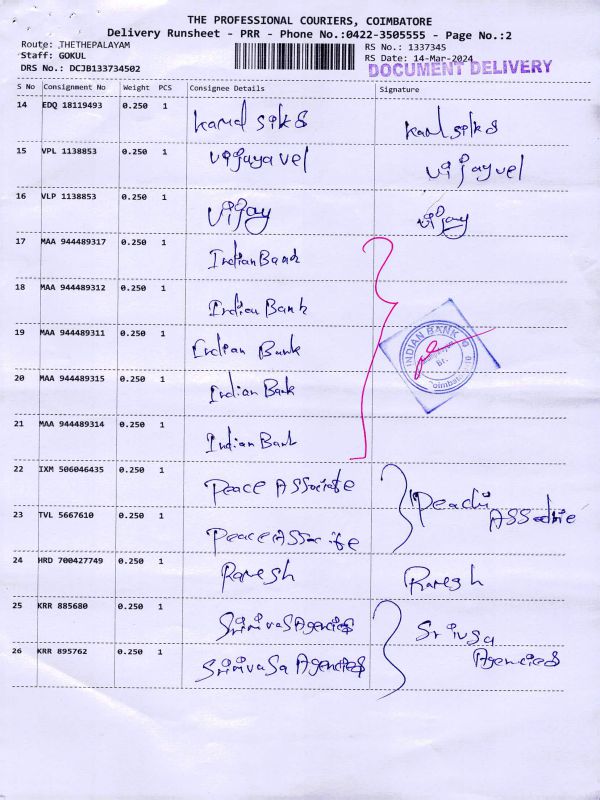 THE PROFESSIONAL COURIERS, COIMBATORE
Delivery Runsheet - PRR - Phone No.:0422-3505555 - Page No.:2
Route: THETHEPALAYAM RS No.: 1337345
Staff: GOKUL RS Date: 14-Mar-2024
DRS No.: DCJB133734502 DOCUMENT DELIVERY
S No Consignment No Weight PCS Consignee Details Signature
14 EDQ 18119493 0.250 1
15 VPL 1138853 0.250 1 Vijayavel Vijayvel
16 VLP 1138853 0.250 1 Vijay Vijay
17 MAA 944489317 0.250 1 Indian Bank
18 MAA 944489312 0.250 1 Indian Bank
19 MAA 944489311 0.250 1 Indian Bank INDIAN BANK
Br.
Coimbatore
20 MAA 944489315 0.250 1 Indian Bank
21 MAA 944489314 0.250 1 Indian Bank
22 IXM 506046435 0.250 1 Peace Associate
23 TVL 5667610 0.250 1 Peace Associate
24 HRD 700427749 0.250 1 Ramesh Ramesh
25 KRR 885680 0.250 1 Srinivas Agencies
26 KRR 895762 0.250 1 Srinivasa Agencies Agencies